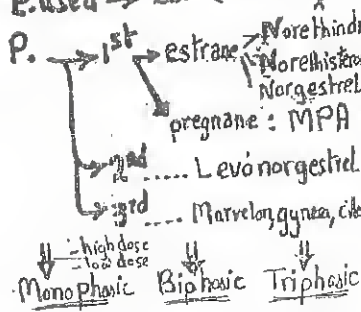 E. used →
P. → 1st → estrane → Norethind
Norethistero
Norgestrel
pregnane : MPA
2nd ..... Levonorgestrel
3rd ..... Marvelon, gynera, cile
- high dose
- low dose
Monophasic Biphasic Triphasic